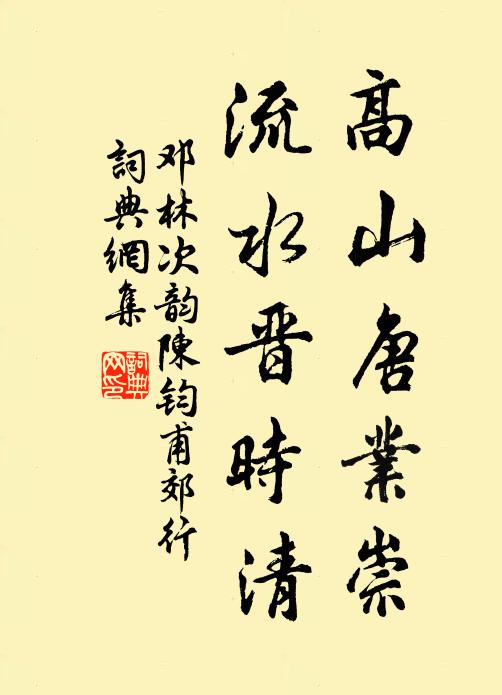 高山唐業崇
流水晋時清
邓林次韵陳鈞甫郊行
詞典網集
詞典
网印